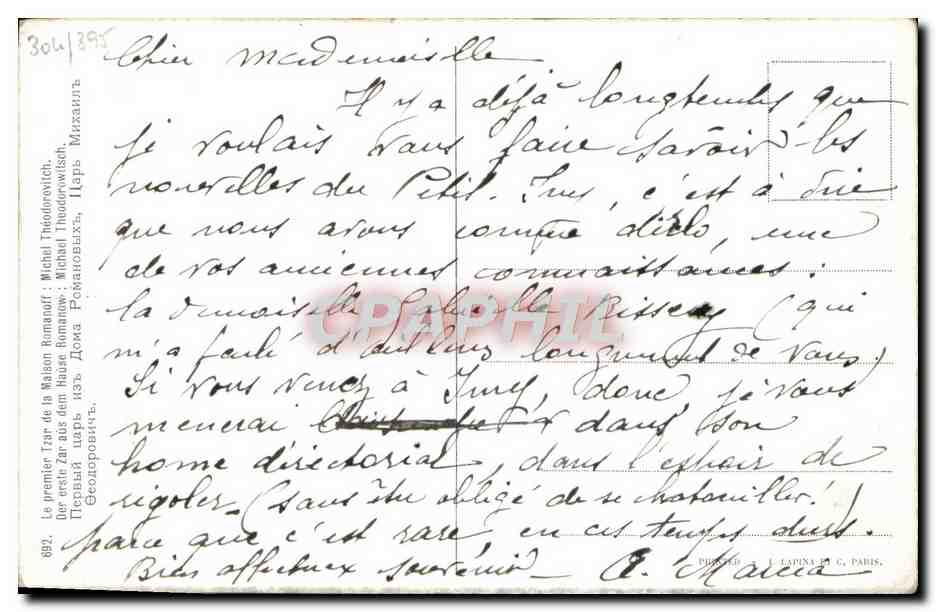 304/395
Cher Mademoiselle
Il y a déjà longtemps que
je voulais vous faire savoir les
nouvelles du Petit. Ivry, c'est à dire
que nous avons comme, une
de vos anciennes connaissances :
la demoiselle Gabrielle Bissey (qui
m'a parlé d'ailleurs longuement de vous)
Si vous venez à Ivry, donc, je vous
menerai dans son
home directorial, dans l'espoir de
rigoler (sans être obligé de se chatouiller!)
parce que c'est rare, en ces temps durs.
Bien affectueux souvenir
692. Le premier Tzar de la Maison Romanoff: Michel Théodorovitch.
Der erste Zar aus dem Hause Romanow: Michael Theodorowitsch.
Первый царь изъ Дома Романовыхъ, Царь Михаилъ
Ѳеодоровичъ.
CPAPHIL
PRINTED I. LAPINA ET C, PARIS.